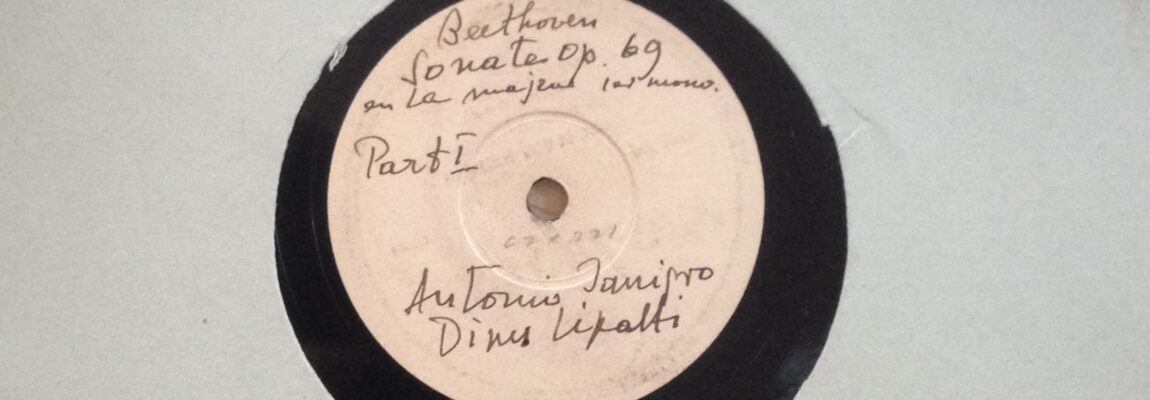 Beethoven
Sonate Op. 69
en La majeur
Part I
Antonio Janigro
Dinu Lipatti